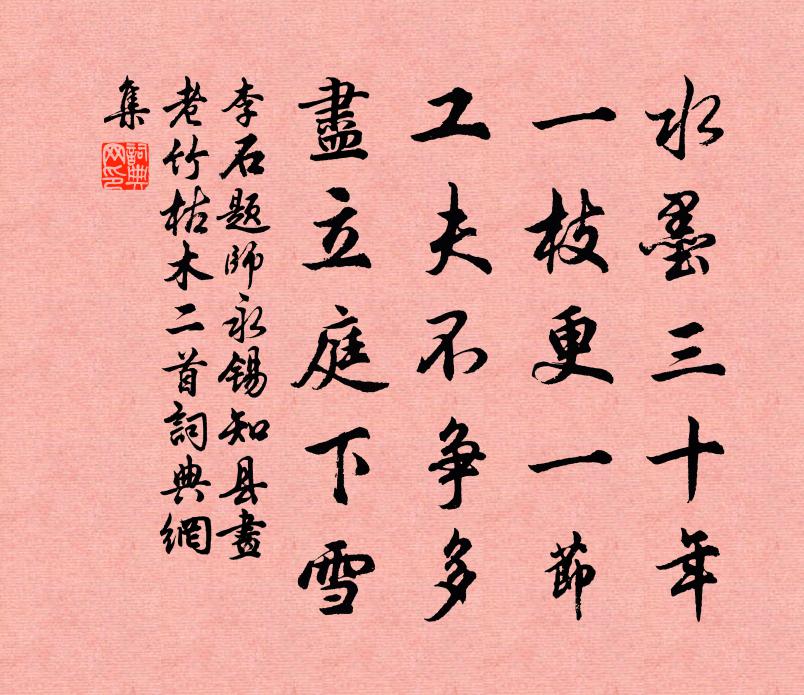 水墨三十年
一枝更一節
工夫不争多
盡立庭下雪
李石题師永锡知县畫
老竹枯木二首詞典網
集
詞典網印